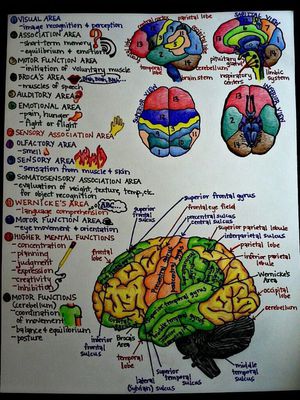 VISUAL AREA
- image recognition + perception
ASSOCIATION AREA
- short-term memory
- equilibrium + emotion
MOTOR FUNCTION AREA
- initiation of voluntary muscle
BROCA'S AREA
- muscles of speech
AUDITORY AREA
EMOTIONAL AREA
- pain, hunger
- fight or flight
SENSORY ASSOCIATION AREA
OLFACTORY AREA
- smell
SENSORY AREA
- sensation from muscle + skin
SOMATOSENSORY ASSOCIATION AREA
- evaluation of weight, texture, temp, etc.
for object recognition
WERNICKE'S AREA
- language comprehension
MOTOR FUNCTION AREA
- eye movement + orientation
HIGHER MENTAL FUNCTIONS
- concentration
- planning
- judgment
- expression
- creativity
- inhibition
MOTOR FUNCTIONS
(cerebellum)
- coordination
of movement
- balance + equilibrium
- posture
parietal lobe
temporal lobe
cerebellum
brain stem
pituitary gland
respiratory centers
limbic system
superior frontal gyrus
superior frontal sulcus
frontal eye field
precentral sulcus
central sulcus
superior parietal lobule
interparietal sulcus
parietal lobe
inferior parietal lobule
Wernicke's Area
occipital lobe
cerebellum
frontal lobe
superior temporal gyrus
inferior frontal sulcus
Broca's Area
temporal lobe
lateral (Sylvian) sulcus
superior temporal sulcus
middle temporal sulcus